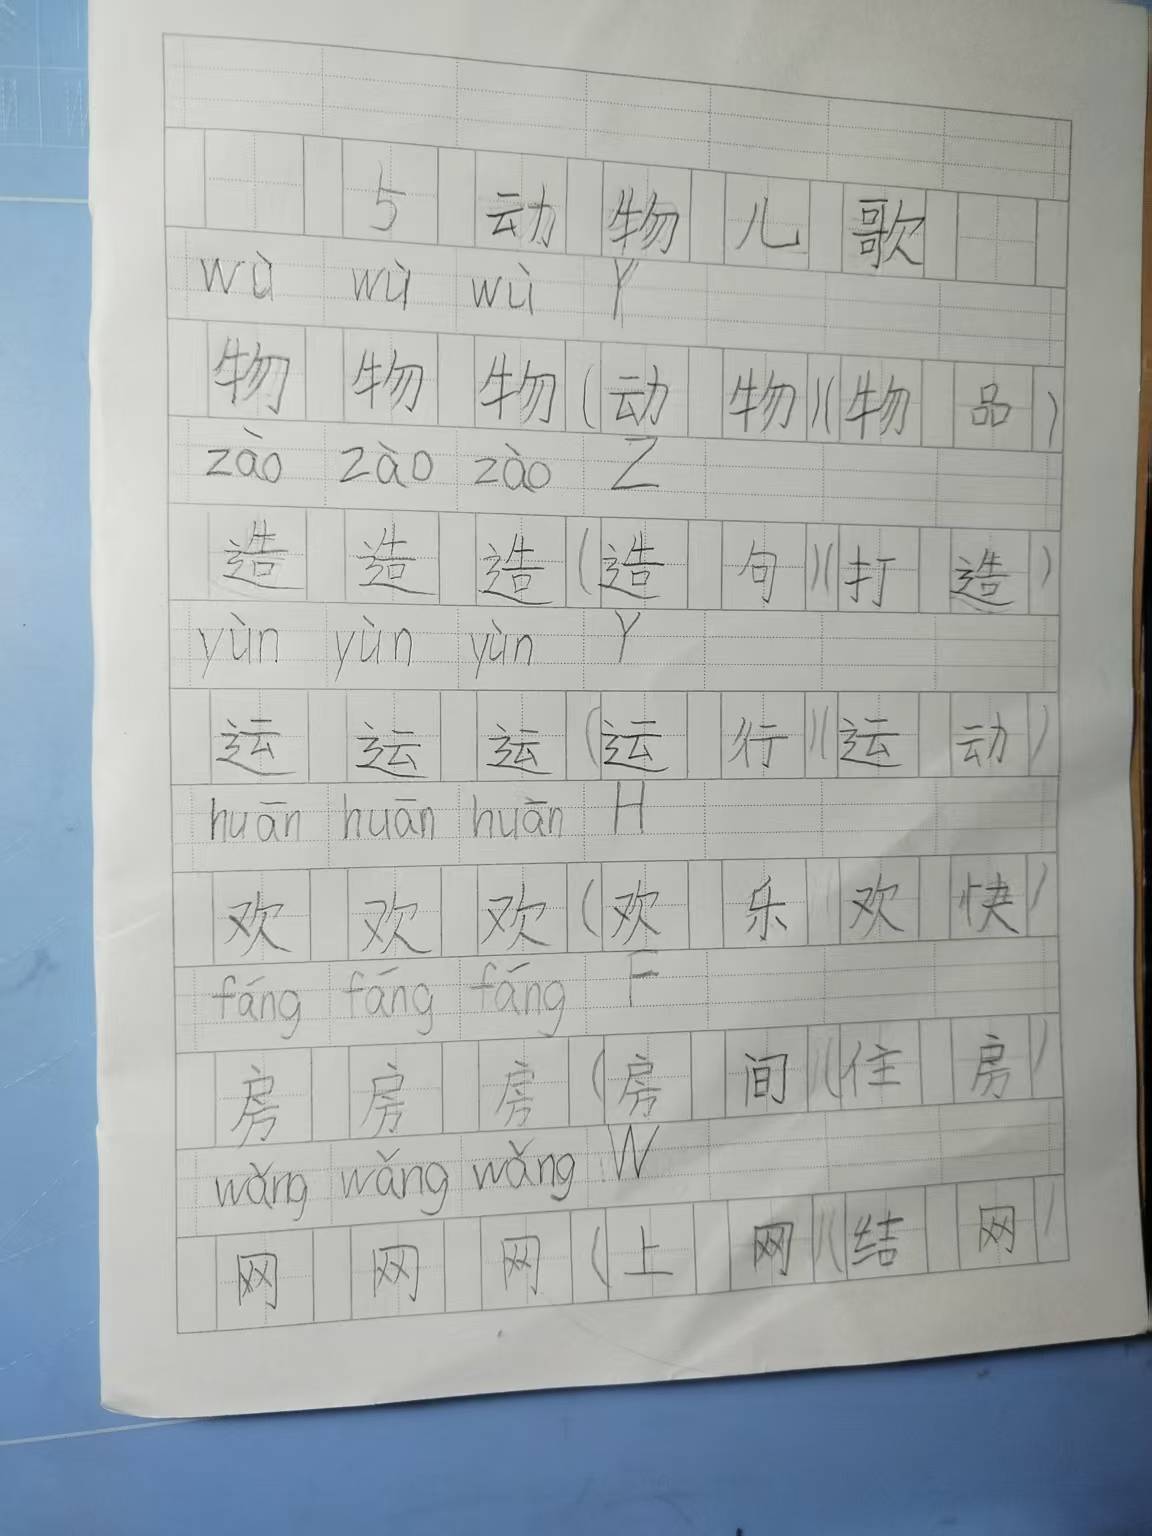 5 动物儿歌
wù wù wù Y
物 物 物 (动物)(物品)
zào zào zào Z
造 造 造 (造句)(打造)
yùn yùn yùn Y
运 运 运 (运行)(运动)
huān huān huān H
欢 欢 欢 (欢乐 欢快)
fáng fáng fáng F
房 房 房 (房间)(住房)
wǎng wǎng wǎng W
网 网 网 (上网)(结网)